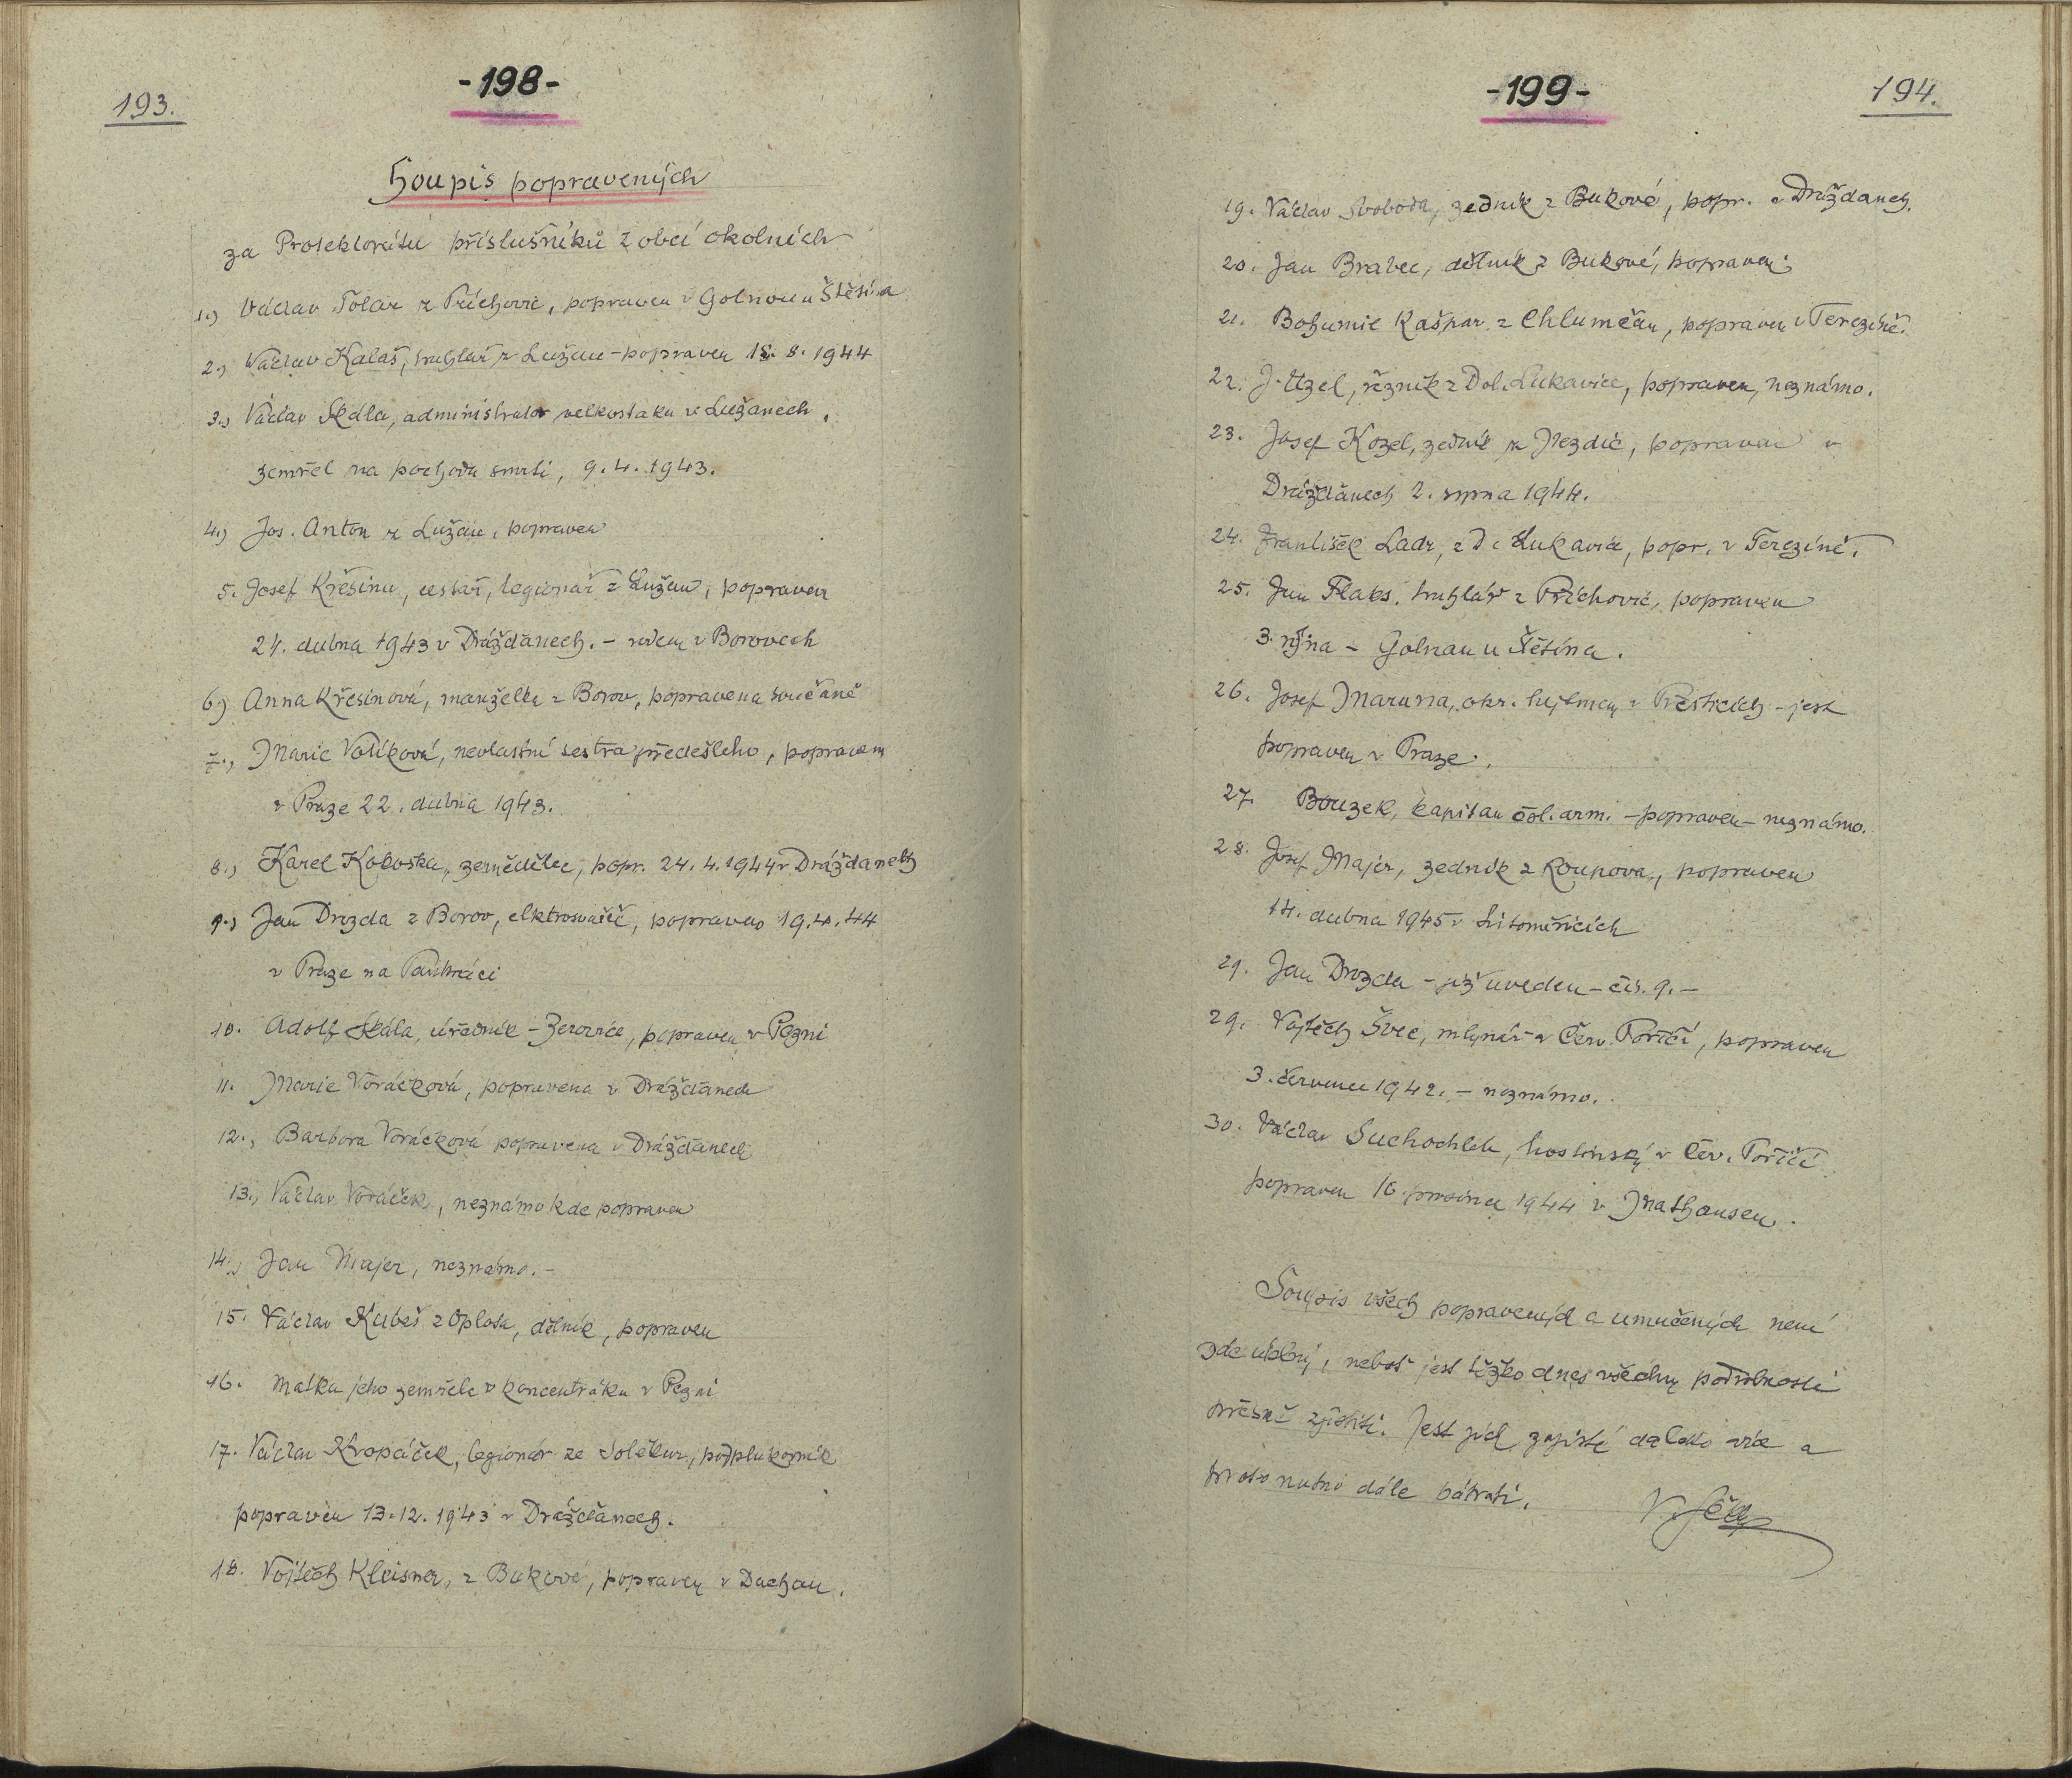 193.
-198-
Soupis popravených
za Protektorátu příslušníků z obcí okolních
1.) Václav Tolar z Příchovic, popraven v Golnovu u Štětína
2.) Václav Kalaš, truhlář z Lužan - popraven 18. 8. 1944
3.) Václav Skdla, administrator velkostatku v Lužanech,
zemřel na pochodu smrti, 9. 4. 1943.
4.) Jos. Anton z Lužan, popraven
5. Josef Křesina, cestář, legionář z Lužan, popraven
24. dubna 1943 v Drážďanech. - rodem z Borovech
6.) Anna Křesinová, manželka z Borov, popravena současně
7.) Marie Volíková, nevlastní sestra předešlého, popravena
v Praze 22. dubna 1943.
8.) Karel Koloska, zemědělec, popr. 24. 4. 1944 v Drážďanech
9.) Jan Drozda z Borov, elktrosvařeč, popraven 19. 4. 44
v Praze na Pankráci
10. Adolf Skála, úředník - Zerovice, popraven v Plzni
11. Marie Voráčková, popravena v Drážďanech
12., Barbora Voráčková popravena v Drážďanech
13., Václav Voráček, neznámo kde popraven
14., Jan Majer, neznámo. -
15. Václav Kubeš z Oplota, dělník, popraven
16. Matka jeho zemřela v koncentráku v Plzni
17. Václav Kropáček, legionář ze Soběkur, podplukovník
popraven 13. 12. 1943 v Drážďanech.
18. Vojtěch Kleisner, z Bukové, popraven v Dachau.
-199-
194.
19. Václav Svoboda, zedník z Bukové, popr. v Drážďanech.
20. Jan Brabec, dělník z Bukové, popraven.
21. Bohumil Kašpar z Chlumčan, popraven v Terezíně.
22. J. Uzel, řezník z Dol. Lukavice, popraven, neznámo.
23. Josef Kozel, zedník z Nezdic, popraven v
Drážďanech 2. srpna 1944.
24. František Ladr, z D. Lukavice, popr. v Terezíně.
25. Jan Flaks, truhlář z Příchovic, popraven
3. října - Golnau u Štětína.
26. Josef Maruna, okr. hejtman v Přešticích - jest
popraven v Praze.
27. Bouzek, kapitan čsl. arm. - popraven - neznámo.
28. Josef Majer, zedník z Roupova, popraven
14. dubna 1945 v Litoměřicích
29. Jan Drozda - již uveden - čís. 9. -
29. Vojtěch Švec, mlynář v Červ. Poříčí, popraven
3. července 1942. - neznámo.
30. Václav Suchochleb, hostinský v Čer. Poříčí
popraven 16. prosince 1944 v Mathausen.
Soupis všech popravených a umučených není
zde úplný, neboť jest těžko dnes všechny podrobnosti
přesně zjistiti. Jest jich zajisté daleko více a
proto nutno dále pátrati.